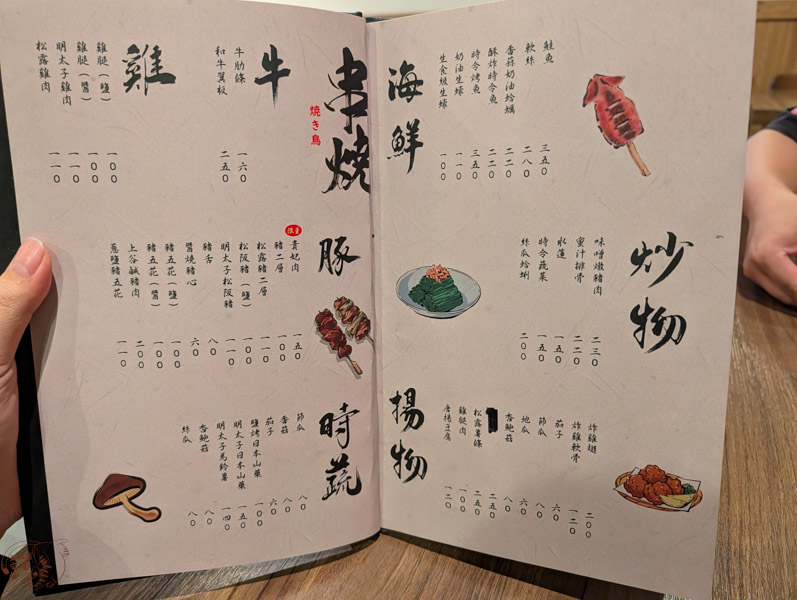 海鮮
鮭魚 三五〇
軟絲 二八〇
香蒜奶油蛤蠣 二二〇
酥炸時令魚 二二〇
時令烤魚 三五〇
奶油生蠔 一一〇
生食級生蠔 一〇〇
炒物
味噌燉豬肉 二三〇
蜜汁排骨 二二〇
水蓮 一五〇
時令蔬菜 一五〇
絲瓜蛤蜊 二〇〇
揚物
炸雞翅 二〇〇
炸雞軟骨 一二〇
茄子 六〇
節瓜 八〇
地瓜 六〇
杏鮑菇 八〇
二五〇
松露薯條 二五〇
雞腿肉 一〇〇
唐揚豆腐 一二〇
串燒
焼き鳥
牛
牛肋條 一六〇
和牛翼板 二五〇
雞
雞腿（鹽） 一〇〇
雞腿（醬） 一〇〇
明太子雞肉 一一〇
松露雞肉 一一〇
豚
限量
貴妃肉 一五〇
豬二層 一〇〇
松露豬二層 一一〇
松阪豬（鹽） 一〇〇
明太子松阪豬 一一〇
豬舌 八〇
醬燒豬心 六〇
豬五花（鹽） 一〇〇
豬五花（醬） 一〇〇
上谷鹹豬肉 二〇〇
蔥鹽豬五花 一一〇
時蔬
節瓜 八〇
香菇 八〇
茄子 六〇
鹽烤日本山藥 一〇〇
明太子日本山藥 一五〇
明太子馬鈴薯 一四〇
杏鮑菇 八〇
絲瓜 八〇